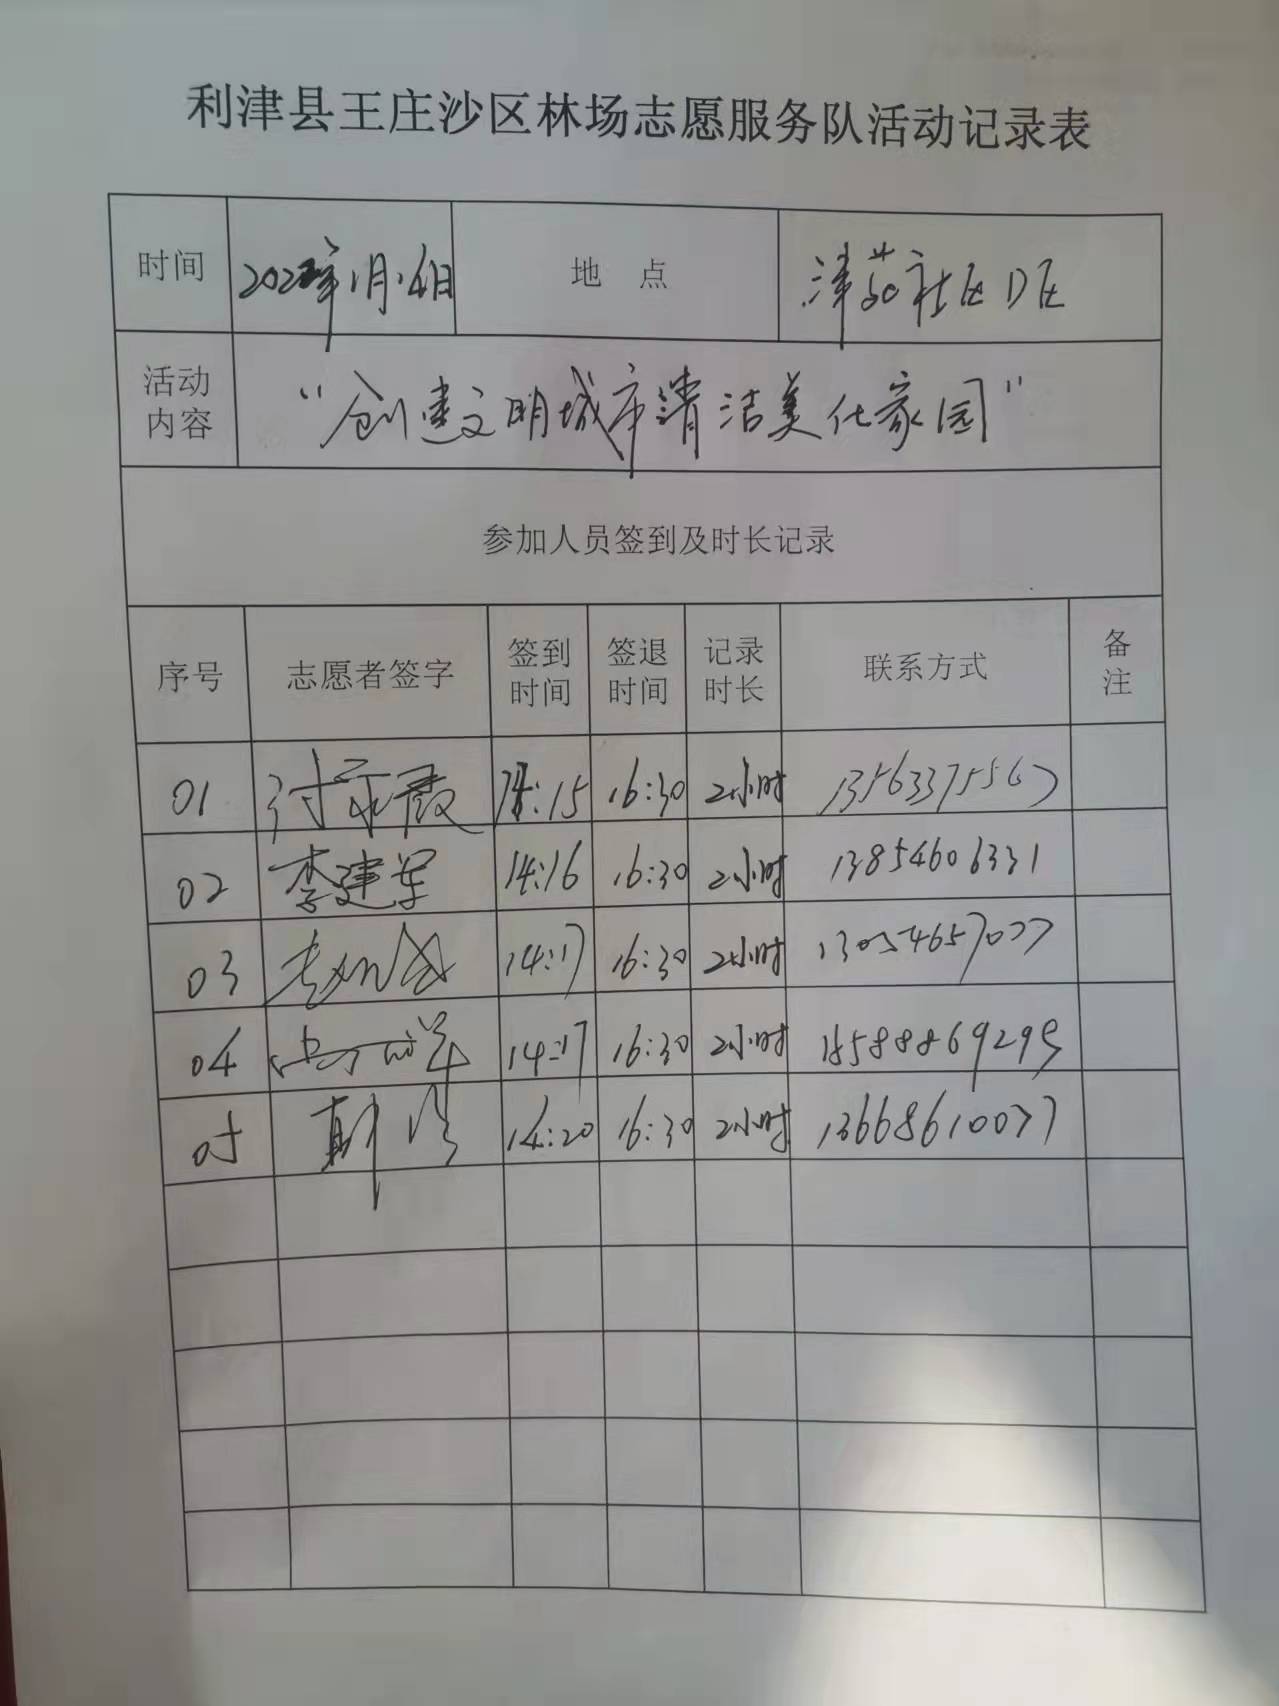 利津县王庄沙区林场志愿服务队活动记录表
时间 2022年1月14日 地 点 津苑社区D区
活动内容 “创建文明城市清洁美化家园”
参加人员签到及时长记录
序号 志愿者签字 签到时间 签退时间 记录时长 联系方式 备注
01 14:15 16:30 2小时 13563375567
02 李建军 14:16 16:30 2小时 13854606331
03 14:17 16:30 2小时 13054657077
04 14:17 16:30 2小时 18588869295
05 14:20 16:30 2小时 13668610077